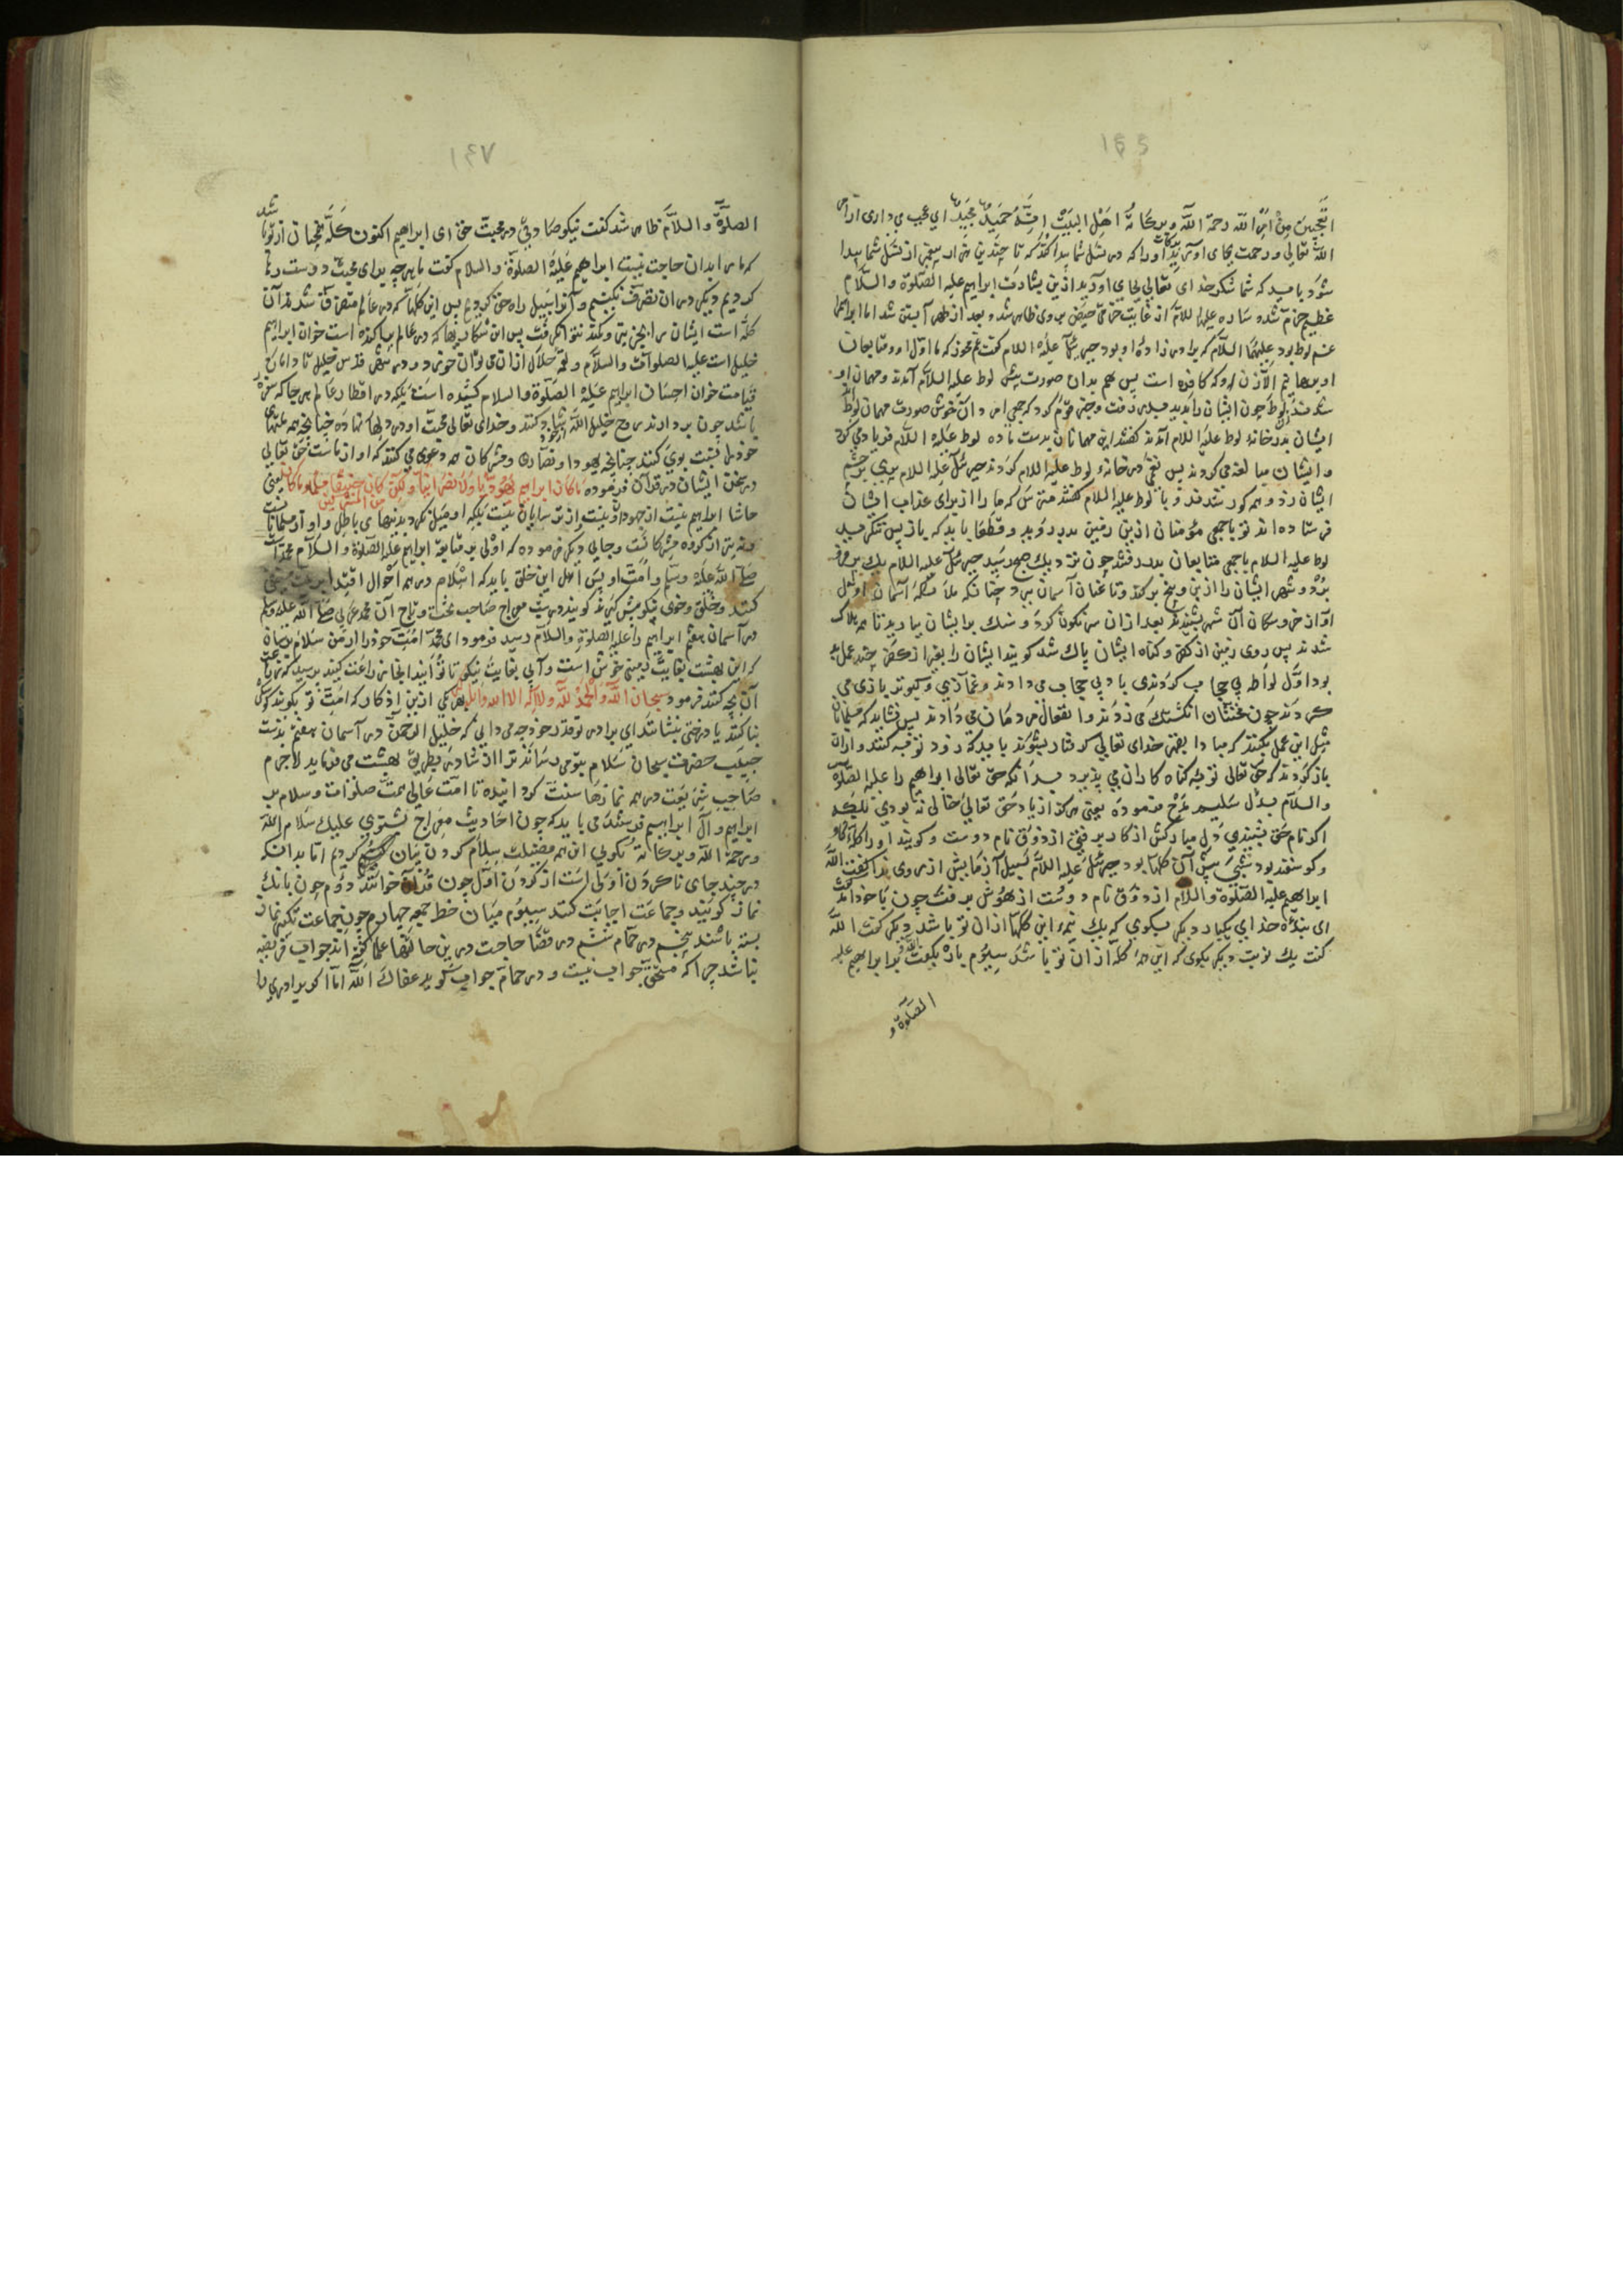 ۱۴۶
اتعجبین من امر الله رحمة الله وبرکاته اهل البیت انه حمید مجید ای عجب می داری از امر
الله تعالی ورحمت بجای آورید اورا که در نسل شما پیدا کند که تا چندین هزار پیغمبر از نسل شما پیدا
شود باید که شما شکر خدای تعالی بجای آورید ازین بشارت ابراهیم علیه الصلوة والسلام
عظیم خرم شد و ساره علیها السلام از غایت خرمی حیض بر وی ظاهر شد و بعد از طهر آبستن شد اما ابراهیم را
غم لوط بود علیهما السلام که برادر زاده او بود جبرئیل علیه السلام گفت غم مخور که ما اول او و متابعان
او برهانیم الا زن او که کافره است پس هم بدان صورت پیش لوط علیه السلام آمدند و مهمان او
شدند زن لوط چون ایشان را بدید میدر رفت و خبر قوم کرد که جهار مردان خوش صورت مهمان لوط اند
ایشان بدر خانه لوط علیه السلام آمدند گفتند این مهمانان بدست ما ده لوط علیه السلام فریاد می کرد
و ایشان مبالغه می کردند پس نقبی در خانه لوط علیه السلام کردند جبرئیل علیه السلام پری بر چشم
ایشان زد و همه کور شدند و با لوط علیه السلام گفتند مترس که ما را از برای عذاب ایشان
فرستاده اند تو با جمعی مؤمنان ازین زمین بدر روید و قطعا باید که باز پس ننگرید
لوط علیه السلام با جمعی متابعان بدر رفتند چون نزدیک صبح رسید جبرئیل علیه السلام یک پر فرو
برد و شهر ایشان را از بن و بیخ برکند و تا عنان آسمان ببرد چنانکه ملائکه آسمان اول
آواز خر و سگان آن شهر بشنیدند بعد ازان سرنگون کرد و سنک بر ایشان بارید تا همه هلاک
شدند پس روی زمین از کفر و گناه ایشان پاک شد گویند ایشان را بغیر از کفر چند عمل بد
بود اول لواطه بی حجاب کردندی یا دبی حجاب می دادند و غمازی و کبوتر بازی می
کردند چون مخنثان انگشتک می زدند و افعال مردمان می دادند پس نشاید که مسلمانان
مثل این عمل بکنند که مبادا بقهر خدای تعالی گرفتار بشوند باید که زود توبه کنند و ازان
باز گردند که حق تعالی توبه گناه کاران می پذیرد بدانکه حق تعالی ابراهیم را علیه الصلوة
والسلام بدل سلیم مدح فرموده یعنی هرگز از یاد حق تعالی خالی نه بودی بلکه
اگر نام حق شنیدی دل مبارکش از کار برفتی از ذوق نام دوست و گویند او را گله گاو
و گوسفند بود شبی پس آن گلها بود جبرئیل علیه السلام بسبیل آزمایش از مروی ندا گفت الله
ابراهیم علیه الصلوة والسلام از ذوق نام دوست از هوش برفت چون با خود آمد گفت
ای بنده خدای یکبار دیگر بگوی که یک نیمه این گلها ازان تو باشد دیگر گفت الله
گفت یک نوبت دیگر بگوی که این همه گله ازان تو باشد سیوم باز بگفت الله و بر ابراهیم علیه
الصلوة و
۱۴۷
الصلوة والسلام ظاهر شد گفت نیکو صادقی در محبت حق ای ابراهیم اکنون گله نگهبان از تو باشد
که ما را بدان حاجت نیست ابراهیم علیه الصلوة والسلام گفت ما هرچه برای محبت دوست رها
کردیم دیگر در ان تصرف نکنیم و آنرا سبیل راه حق کردیم پس این گلها که در عالم متصرف شد از آن
گله است ایشان را بجز تیر و کمند نتوان گرفت پس این شکاریها که در عالم پراکنده است خوان ابراهیم
خلیل است علیه الصلوات والسلام و لقمه حلال ازان می توان خوردن و در شهر قدس خلیل تا دامان
قیامت خوان احسان ابراهیم علیه الصلوة والسلام کشیده است بلکه در اقطار عالم هر جا که سفره
باشد چون بردارند روح خلیل الله را یاد کنند و خدای تعالی محبت او در دلها نهاده چنانچه همه ملتهای
خود را نسبت بوی کنند چنانچه یهود و نصاری و مشرکان همه دعوی می کنند که او از ماست حق تعالی
در سخن ایشان در قرآن فرموده ما کان ابراهیم یهودیا ولا نصرانیا ولکن کان حنیفا مسلما وما کان من المشرکین یعنی
حاشا ابراهیم نیست از جهودان و نیست از ترسایان نیست بلکه او میل نکرد بدینهای باطل و او از مسلمانانست
و نه نیز از گروه مشرکانست و جای دیگر فرموده که اولی بر متابعه ابراهیم علیه الصلوة والسلام محمد است
صلی الله علیه وسلم و امت او پس اهل این خلق باید که اسلام در همه احوال اقتدا بر
کنند و خلق و خوی نیکو پیش گیرند گویند در شب معراج صاحب تخت و تاج آن محمد عربی صلی الله علیه وسلم
در آسمان هفتم ابراهیم را علیه الصلوة والسلام دید فرمود ای محمد امت خود را از من سلام برسان
که این بهشت بغایت زمین خوش است و آبی بغایت نیکو تا توانید اینجا زراعت کنید پرسید که
آن بچه کنند فرمود سبحان الله والحمد لله ولا اله الا الله والله اکبر ازین اذکار که امت تو بگویند
بنا کنند یا درختی بنشانند ای برادر تو قدر خود چه می دانی که خلیل الرحمن در آسمان هفتم بدست
حبیب حضرت سبحان سلام بتو می رساند ترا ارشاد بر طریق بهشت می فرماید لاجرم
صاحب شریعت در همه نمازها سنت کردانیده تا امت عالی همت صلوات و سلام بر
ابراهیم و آل ابراهیم فرستند می باید که چون احادیث معراج بشنوی علیک سلام الله
ورحمة الله وبرکاته بگویی
در چند جای ناکردن اولی است از کردن اول چون قرآن خوانند دوم چون بانک
نماز گویند و جماعت اجابت کنند سیوم میان خطبه جمعه چهارم چون جماعت تکبیر نماز
بسته باشند پنجم در حمام ششم در قضا حاجت درین حالتها علما گفته اند جواب فریضه
نباشد چرا که مستحق جواب نیست و در حمام جواب گوید عفاک الله اما اگر برادری را